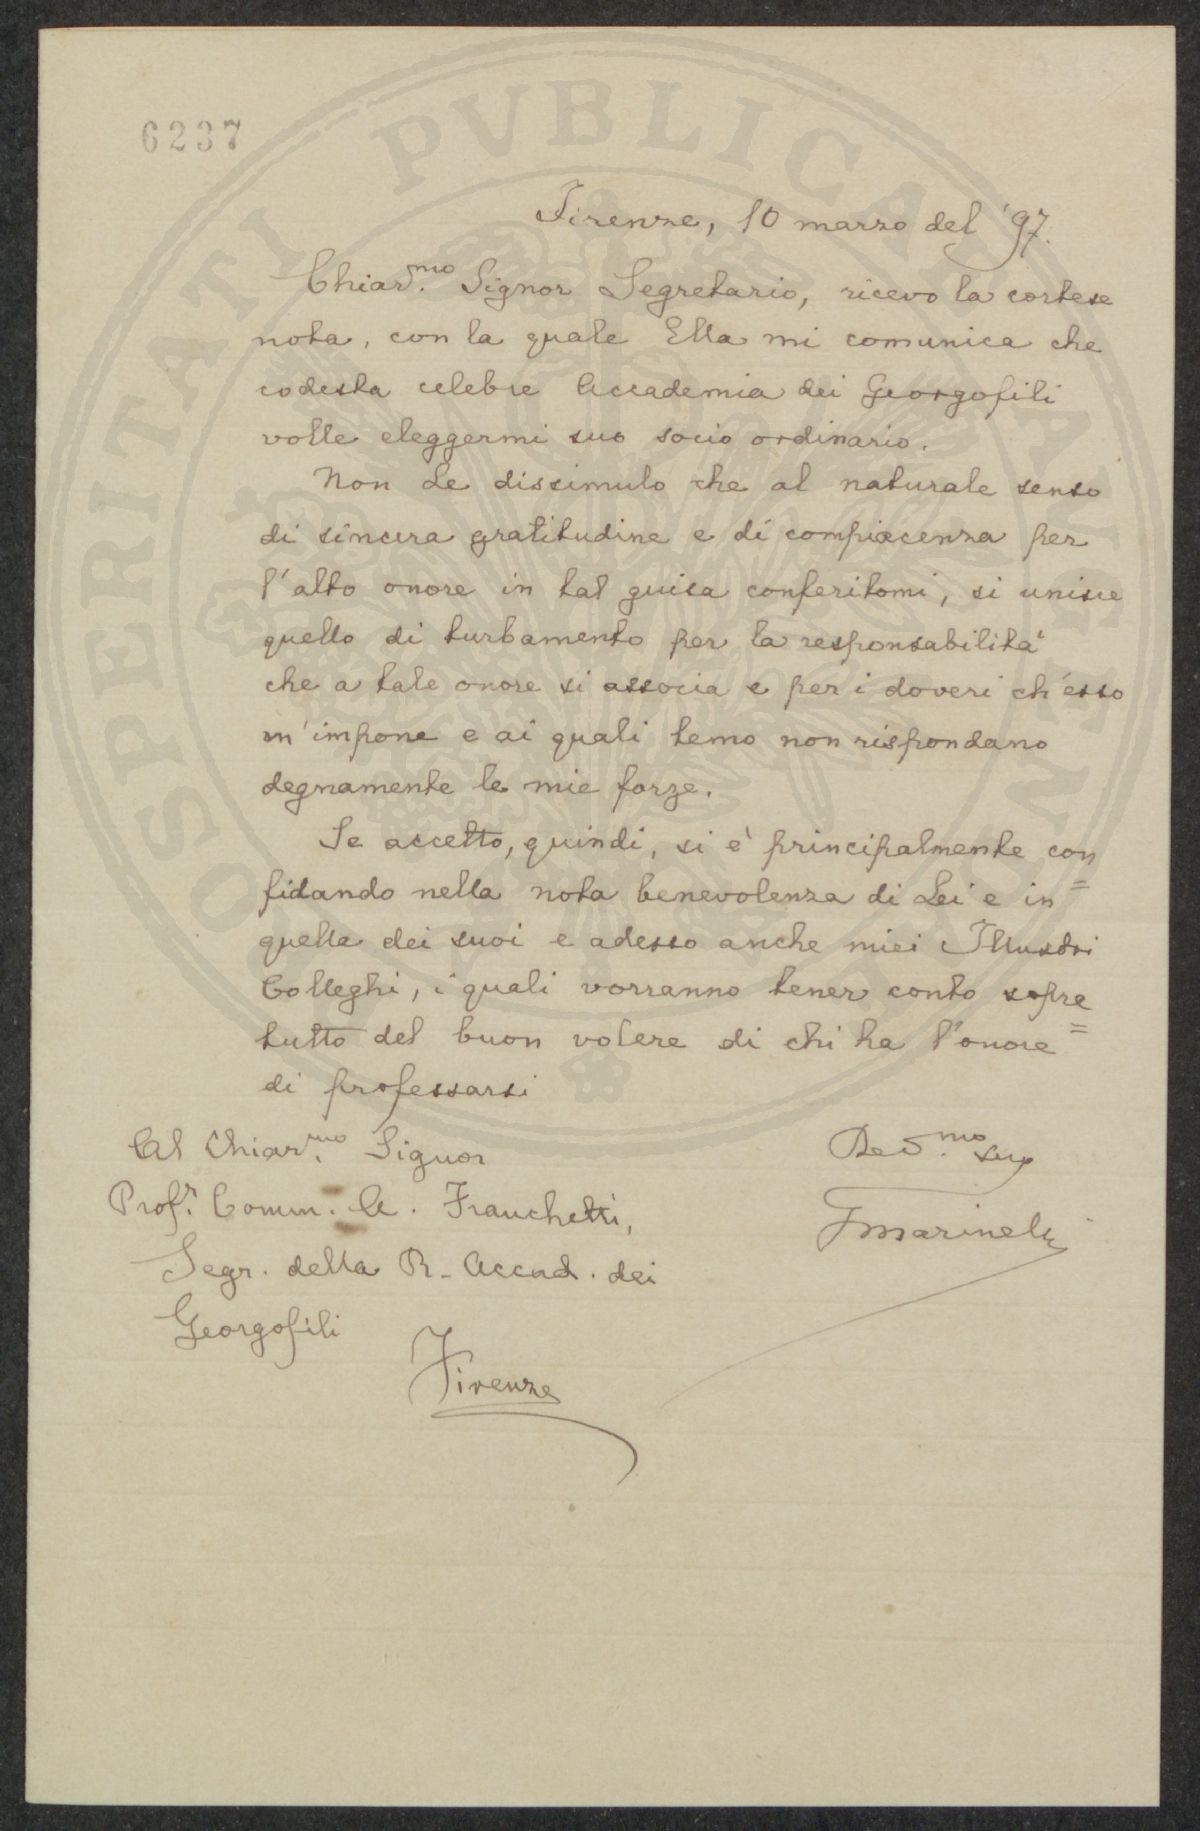 PROSPERITATI PVBLICAE AVGENDAE
6237
Firenze, 10 marzo del '97.
Chiar.mo Signor Segretario, ricevo la cortese
nota, con la quale Ella mi comunica che
codesta celebre Accademia dei Georgofili
volle eleggermi suo socio ordinario.
Non Le dissimulo che al naturale senso
di sincera gratitudine e di compiacenza per
l'alto onore in tal guisa conferitomi, si unisce
quello di turbamento per la responsabilità
che a tale onore si associa e per i doveri ch'esso
m'impone e ai quali temo non rispondano
degnamente le mie forze.
Se accetto, quindi, si è principalmente con
fidando nella nota benevolenza di Lei e in=
quella dei suoi e adesso anche miei Illustri
Colleghi, i quali vorranno tener conto sopra
tutto del buon volere di chi ha l'onore=
di professarsi
Dev.mo suo
GMarinelli
Al Chiar.mo Signor
Prof.r Comm. A. Franchetti,
Segr. della R. Accad. dei
Georgofili
Firenze